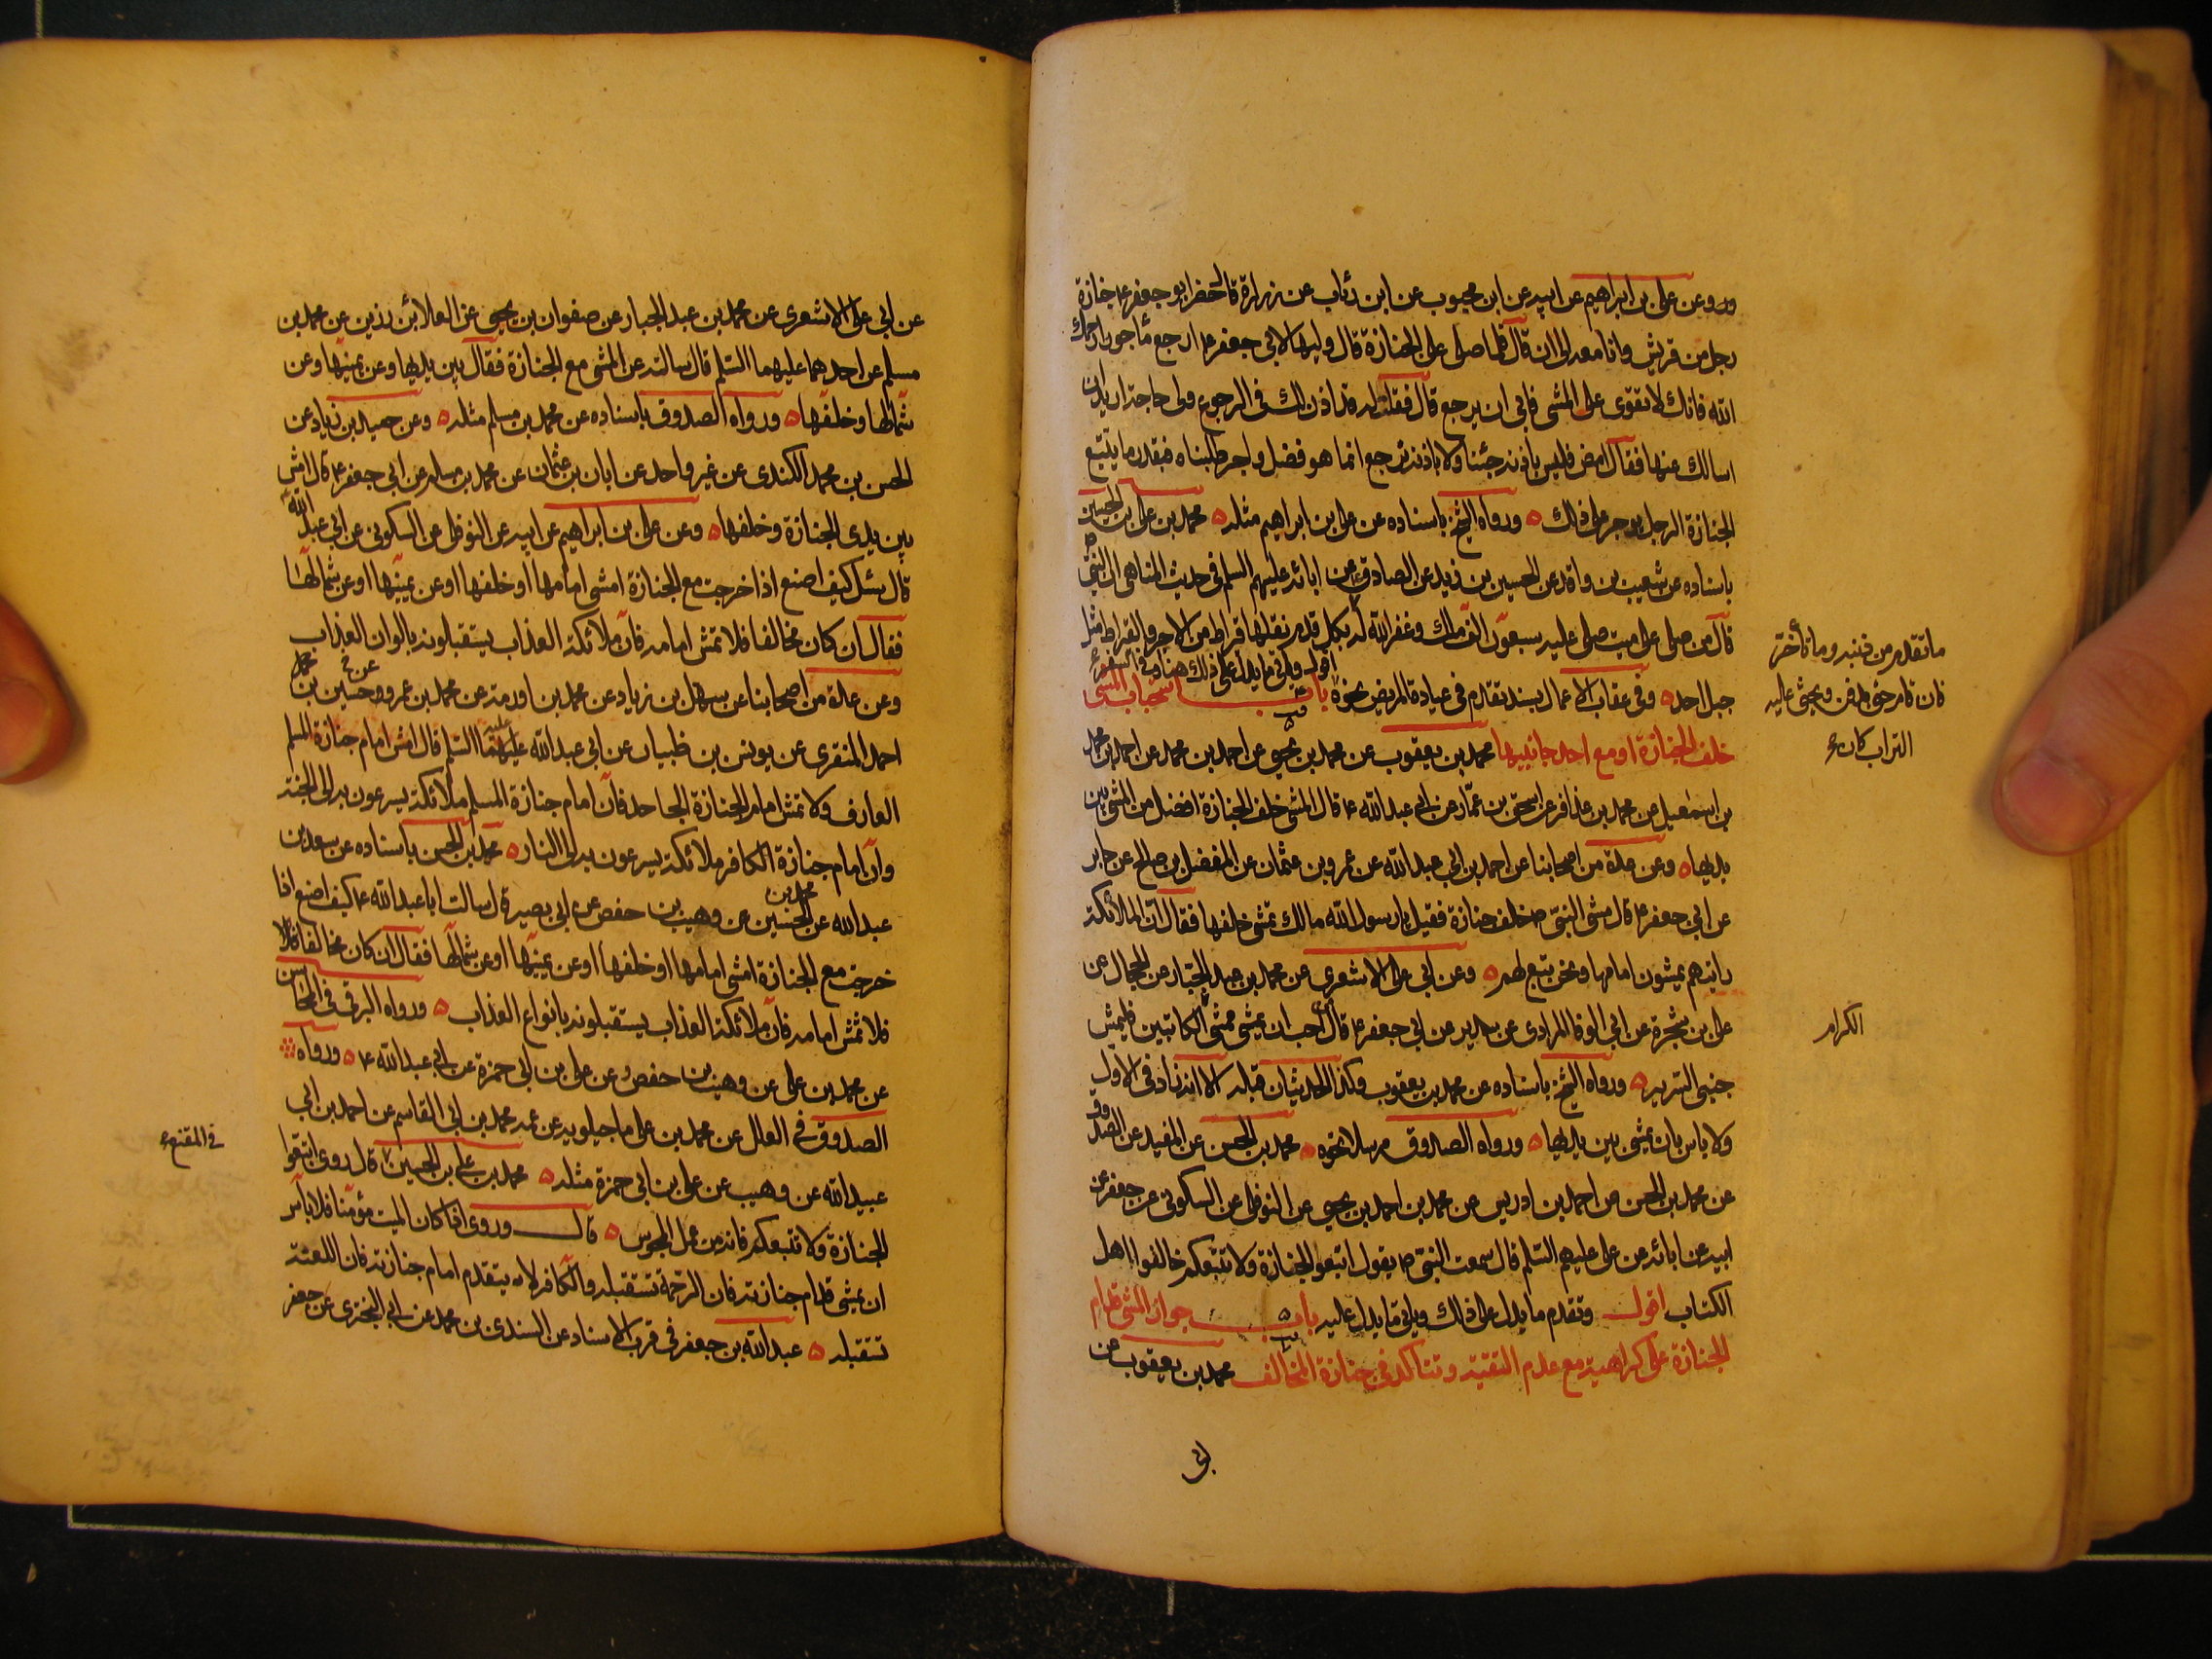 وعن على بن ابراهيم عن ابيه عن ابن محبوب عن ابن رئاب عن زرارة قال حضر ابو جعفر ع جنازة
رجل من قريش وانا معه الى ان قال فلما صلى على الجنازة قال وليها لابى جعفر ع ارجع مأجورا رحمك
الله فانك لا تقوى على المشى فابى ان يرجع قال فقلت له قد اذن لك فى الرجوع ولى حاجة اريد ان
اسالك عنها فقال امض فليس باذنه جئنا ولا باذنه نرجع انما هو فضل واجر طلبناه فبقدر ما يتبع
الجنازة الرجل يوجر على ذلك ورواه الشيخ باسناده عن على بن ابراهيم مثله محمد بن على بن الحسين
باسناده عن شعيب بن واقد عن الحسين بن زيد عن الصادق عن ابائه عليهم السلم فى حديث المناهى ان النبى ص
قال من صلى على ميت صلى عليه سبعون الف ملك وغفر الله له بكل قدم نقلها قيراط من الاجر والقيراط مثل
جبل احد وفى عقاب الاعمال بسند تقدم فى عيادة المريض نحوه اقول وياتى ما يدل على ذلك هنا وفى السفر باب استحباب المشى
خلف الجنازة او مع احد جانبيها محمد بن يعقوب عن محمد بن يحيى عن احمد بن محمد عن احمد بن محمد
بن اسمعيل عن محمد بن عذافر عن اسحق بن عمار عن ابى عبد الله ع قال المشى خلف الجنازة افضل من المشى بين
يديها وعن عدة من اصحابنا عن احمد بن ابى عبد الله عن عمرو بن عثمان عن المفضل بن صالح عن جابر
عن ابى جعفر ع قال مشى النبى ص خلف جنازة فقيل يا رسول الله مالك تمشى خلفها فقال ان الملائكة
رايتهم يمشون امامها ونحن تبع لهم وعن ابى على الاشعرى عن محمد بن عبد الجبار عن الحجال عن
على بن شجرة عن ابى الوفا المرادى عن سدير عن ابى جعفر ع قال من احب ان يمشى ممشى الكاتبين فليمش
جنبى السرير ورواه الشيخ باسناده عن محمد بن يعقوب وكذا الحديثان قبله الا انه زاد فى الاول
ولا باس بان يمشى بين يديها ورواه الصدوق مرسلا نحوه محمد بن الحسن عن المفيد عن الصدوق
عن محمد بن الحسن عن احمد بن ادريس عن محمد بن احمد بن يحيى عن النوفلى عن السكونى عن جعفر عن
ابيه عن ابائه عن على عليهم السلم قال سمعت النبى ص يقول اتبعوا الجنازة ولا تتبعكم خالفوا اهل
الكتاب اقول وتقدم ما يدل على ذلك وياتى ما يدل عليه باب جواز المشى قدام
الجنازة على كراهية مع عدم التقية وتتاكد فى جنازة المخالف محمد بن يعقوب عن
ما تقدم من ذنبه وما تأخر
فان قام حتى يدفن ويحثى عليه
التراب كان ع
الكرام
عن ابى على الاشعرى عن محمد بن عبد الجبار عن صفوان بن يحيى عن العلا بن رزين عن محمد بن
مسلم عن احدهما عليهما السلم قال سالته عن المشى مع الجنازة فقال بين يديها وعن يمينها وعن
شمالها وخلفها ورواه الصدوق باسناده عن محمد بن مسلم مثله وعن حميد بن زياد عن
الحسن بن محمد الكندى عن غير واحد عن ابان بن عثمان عن محمد بن مسلم عن ابى جعفر ع قال امش
بين يدى الجنازة وخلفها وعن على بن ابراهيم عن ابيه عن النوفلى عن السكونى عن ابى عبد الله ع
قال سئل كيف اصنع اذا خرجت مع الجنازة امشى امامها او خلفها او عن يمينها او عن شمالها
فقال ان كان مخالفا فلا تمش امامه فان ملائكة العذاب يستقبلونه بالوان العذاب
وعن عدة من اصحابنا عن سهل بن زياد عن محمد بن اورمة عن محمد بن عمرو عن حسين بن محمد
احمد المنقرى عن يونس بن ظبيان عن ابى عبد الله عليه السلم قال امش امام جنازة المسلم
العارف ولا تمش امام الجنازة الجاحد فان امام جنازة المسلم ملائكة يسرعون به الى الجنة
وان امام جنازة الكافر ملائكة يسرعون به الى النار محمد بن الحسن باسناده عن سعد بن
عبد الله عن محمد بن الحسين عن وهيب بن حفص عن ابى بصير قال سالت ابا عبد الله ع كيف اصنع اذا
خرجت مع الجنازة امشى امامها او خلفها او عن يمينها او عن شمالها فقال ان كان مخالفا فلا
فلا تمش امامه فان ملائكة العذاب يستقبلونه بانواع العذاب ورواه البرقى فى المحاسن
عن محمد بن على عن وهيب بن حفص وعن على بن ابى حمزة عن ابى عبد الله ع ورواه
الصدوق فى العلل عن محمد بن على ماجيلويه عن عمه محمد بن ابى القاسم عن احمد بن ابى
عبيد الله عن وهيب عن على بن ابى حمزة مثله محمد بن على بن الحسين قال روى اتبعوا
الجنازة ولا تتبعكم فانه من عمل المجوس قال وروى اذا كان الميت مؤمنا فلا بأس
ان يمشى قدام جنازته فان الرحمة تستقبله والكافر لا يتقدم امام جنازته فان اللعنة
تستقبله عبد الله بن جعفر فى قرب الاسناد عن السندى بن محمد عن ابى البخترى عن جعفر
فى المقنع ع